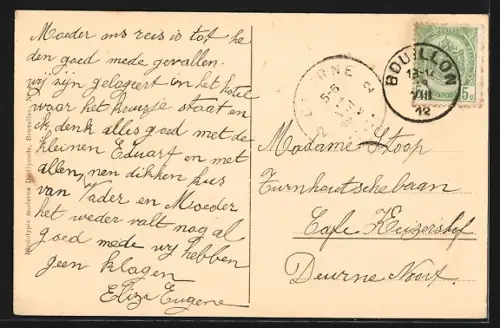 Moeder ons reis is tot he
den goed mede gevallen
wij zijn gelogeert in het hotel
waar het kruisje staat en
ik denk alles goed met de
kleinen Eduart en met
allen, nen dikken kus
van Vader en Moeder
het weder valt nog al
goed mede wij hebben
geen klagen
Eliza Eugene
DEURNE 2
5-6
BOUILLON
VIII
12
5c
Madame Stoop
Turnhoutschebaan
Café Keizershof
Deurne Noort.